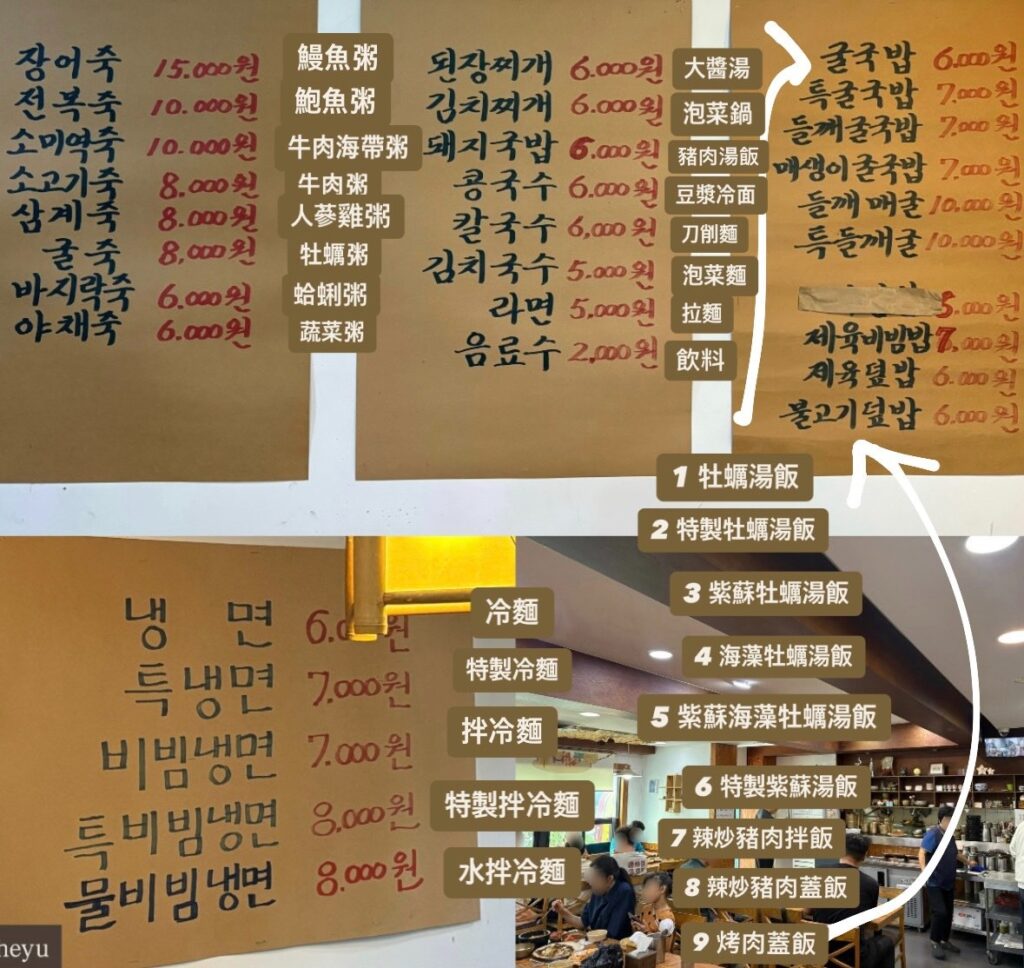 장어죽 15.000원 鰻魚粥
전복죽 10.000원 鮑魚粥
소미역죽 10.000원 牛肉海帶粥
소고기죽 8.000원 牛肉粥
삼계죽 8.000원 人蔘雞粥
굴죽 8,000원 牡蠣粥
바지락죽 6.000원 蛤蜊粥
야채죽 6.000원 蔬菜粥
된장찌개 6.000원 大醬湯
김치찌개 6.000원 泡菜鍋
돼지국밥 6.000원 豬肉湯飯
콩국수 6.000원 豆漿冷面
칼국수 6,000원 刀削麵
김치국수 5.000원 泡菜麵
라면 5,000원 拉麵
음료수 2,000원 飲料
굴국밥 6.000원
특굴국밥 7.000원
들깨굴국밥 7.000원
매생이굴국밥 7.000원
들깨매굴 10,000원
특들깨굴 10,000원
5.000원
제육비빔밥 7,000원
제육덮밥 6.000원
불고기덮밥 6.000원
1 牡蠣湯飯
2 特製牡蠣湯飯
3 紫蘇牡蠣湯飯
4 海藻牡蠣湯飯
5 紫蘇海藻牡蠣湯飯
6 特製紫蘇湯飯
7 辣炒豬肉拌飯
8 辣炒豬肉蓋飯
9 烤肉蓋飯
냉면 6.0 원 冷麵
특냉면 7.000원 特製冷麵
비빔냉면 7.000원 拌冷麵
특비빔냉면 8,000원 特製拌冷麵
물비빔냉면 8.000원 水拌冷麵
heyu